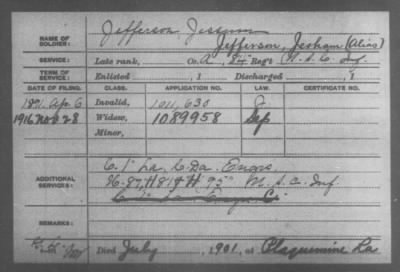 NAME OF SOLDIER:
Jefferson,
Jefferson, Jesham (Alias)
SERVICE:
Late rank, Co. A, 84" Reg't U.S.C. Inf.
TERM OF SERVICE:
Enlisted , 1 Discharged , 1
DATE OF FILING. CLASS. APPLICATION NO. LAW. CERTIFICATE NO.
1891 Apr 6 Invalid, 1011,630
1916 Nov 28 Widow, 1089958
Minor,
ADDITIONAL SERVICES:
C. 1" La. C. Da. Engrs.
87, U.S.C. Inf.
REMARKS:
Died July , 1901, at Plaquemine La